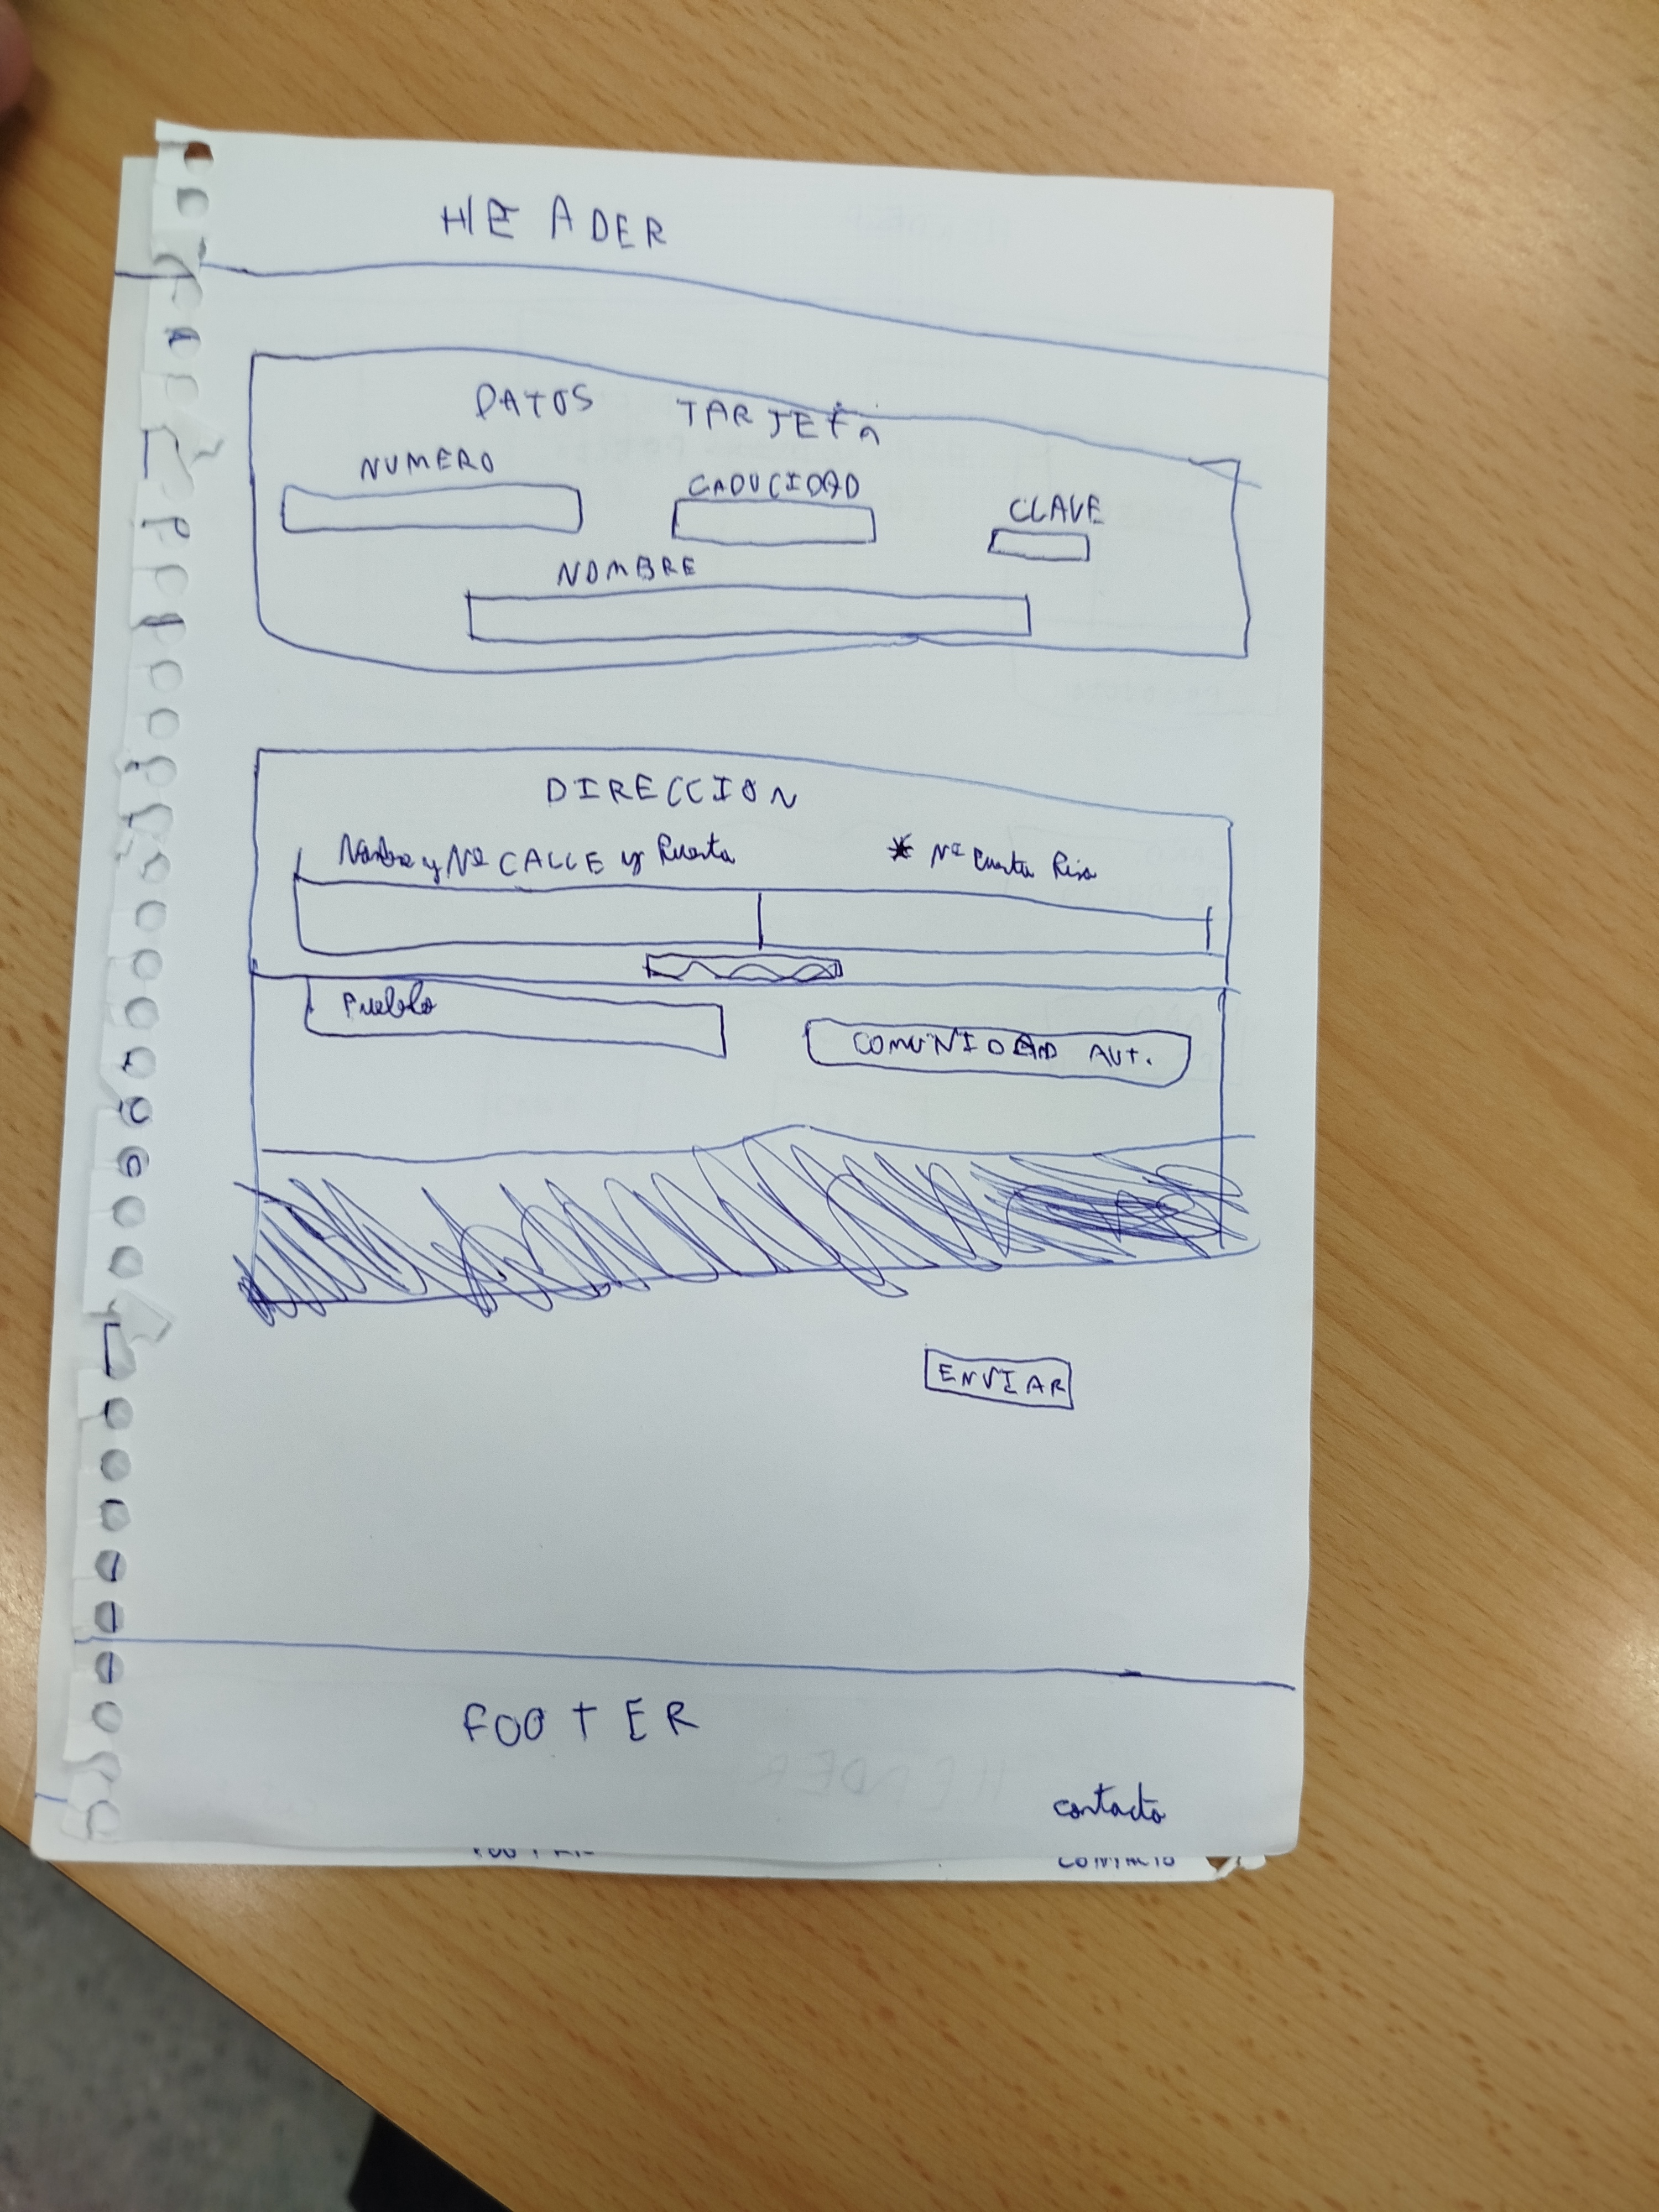 HEADER
DATOS TARJETA
NUMERO
CADUCIDAD
CLAVE
NOMBRE
DIRECCION
Nombre y Nº CALLE y Puerta
* Nº Puerta Piso
Pueblo
COMUNIDAD AUT.
ENVIAR
FOOTER
contacto
CONTACTO